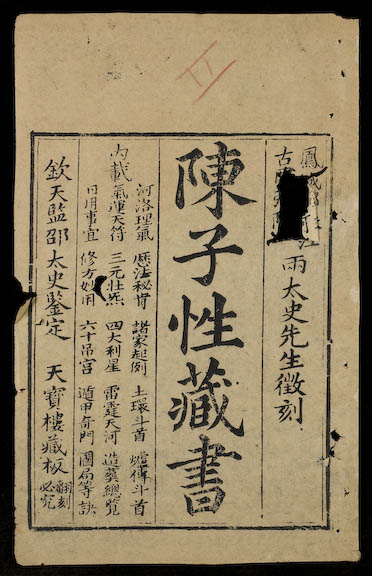 鳳城
古
兩太史先生徵刻
陳子性藏書
內載
河洛理氣 厯法秘旨 諸家起例 土環斗首 爐傳斗首
氣運天符 三元壯炁 四大利星 雷霆天河 造葬總覽
日用事宜 修方妙用 六十吊宮 遁甲奇門 圖局等訣
欽天監邵太史鑒定 天寶樓藏板
翻刻
必究